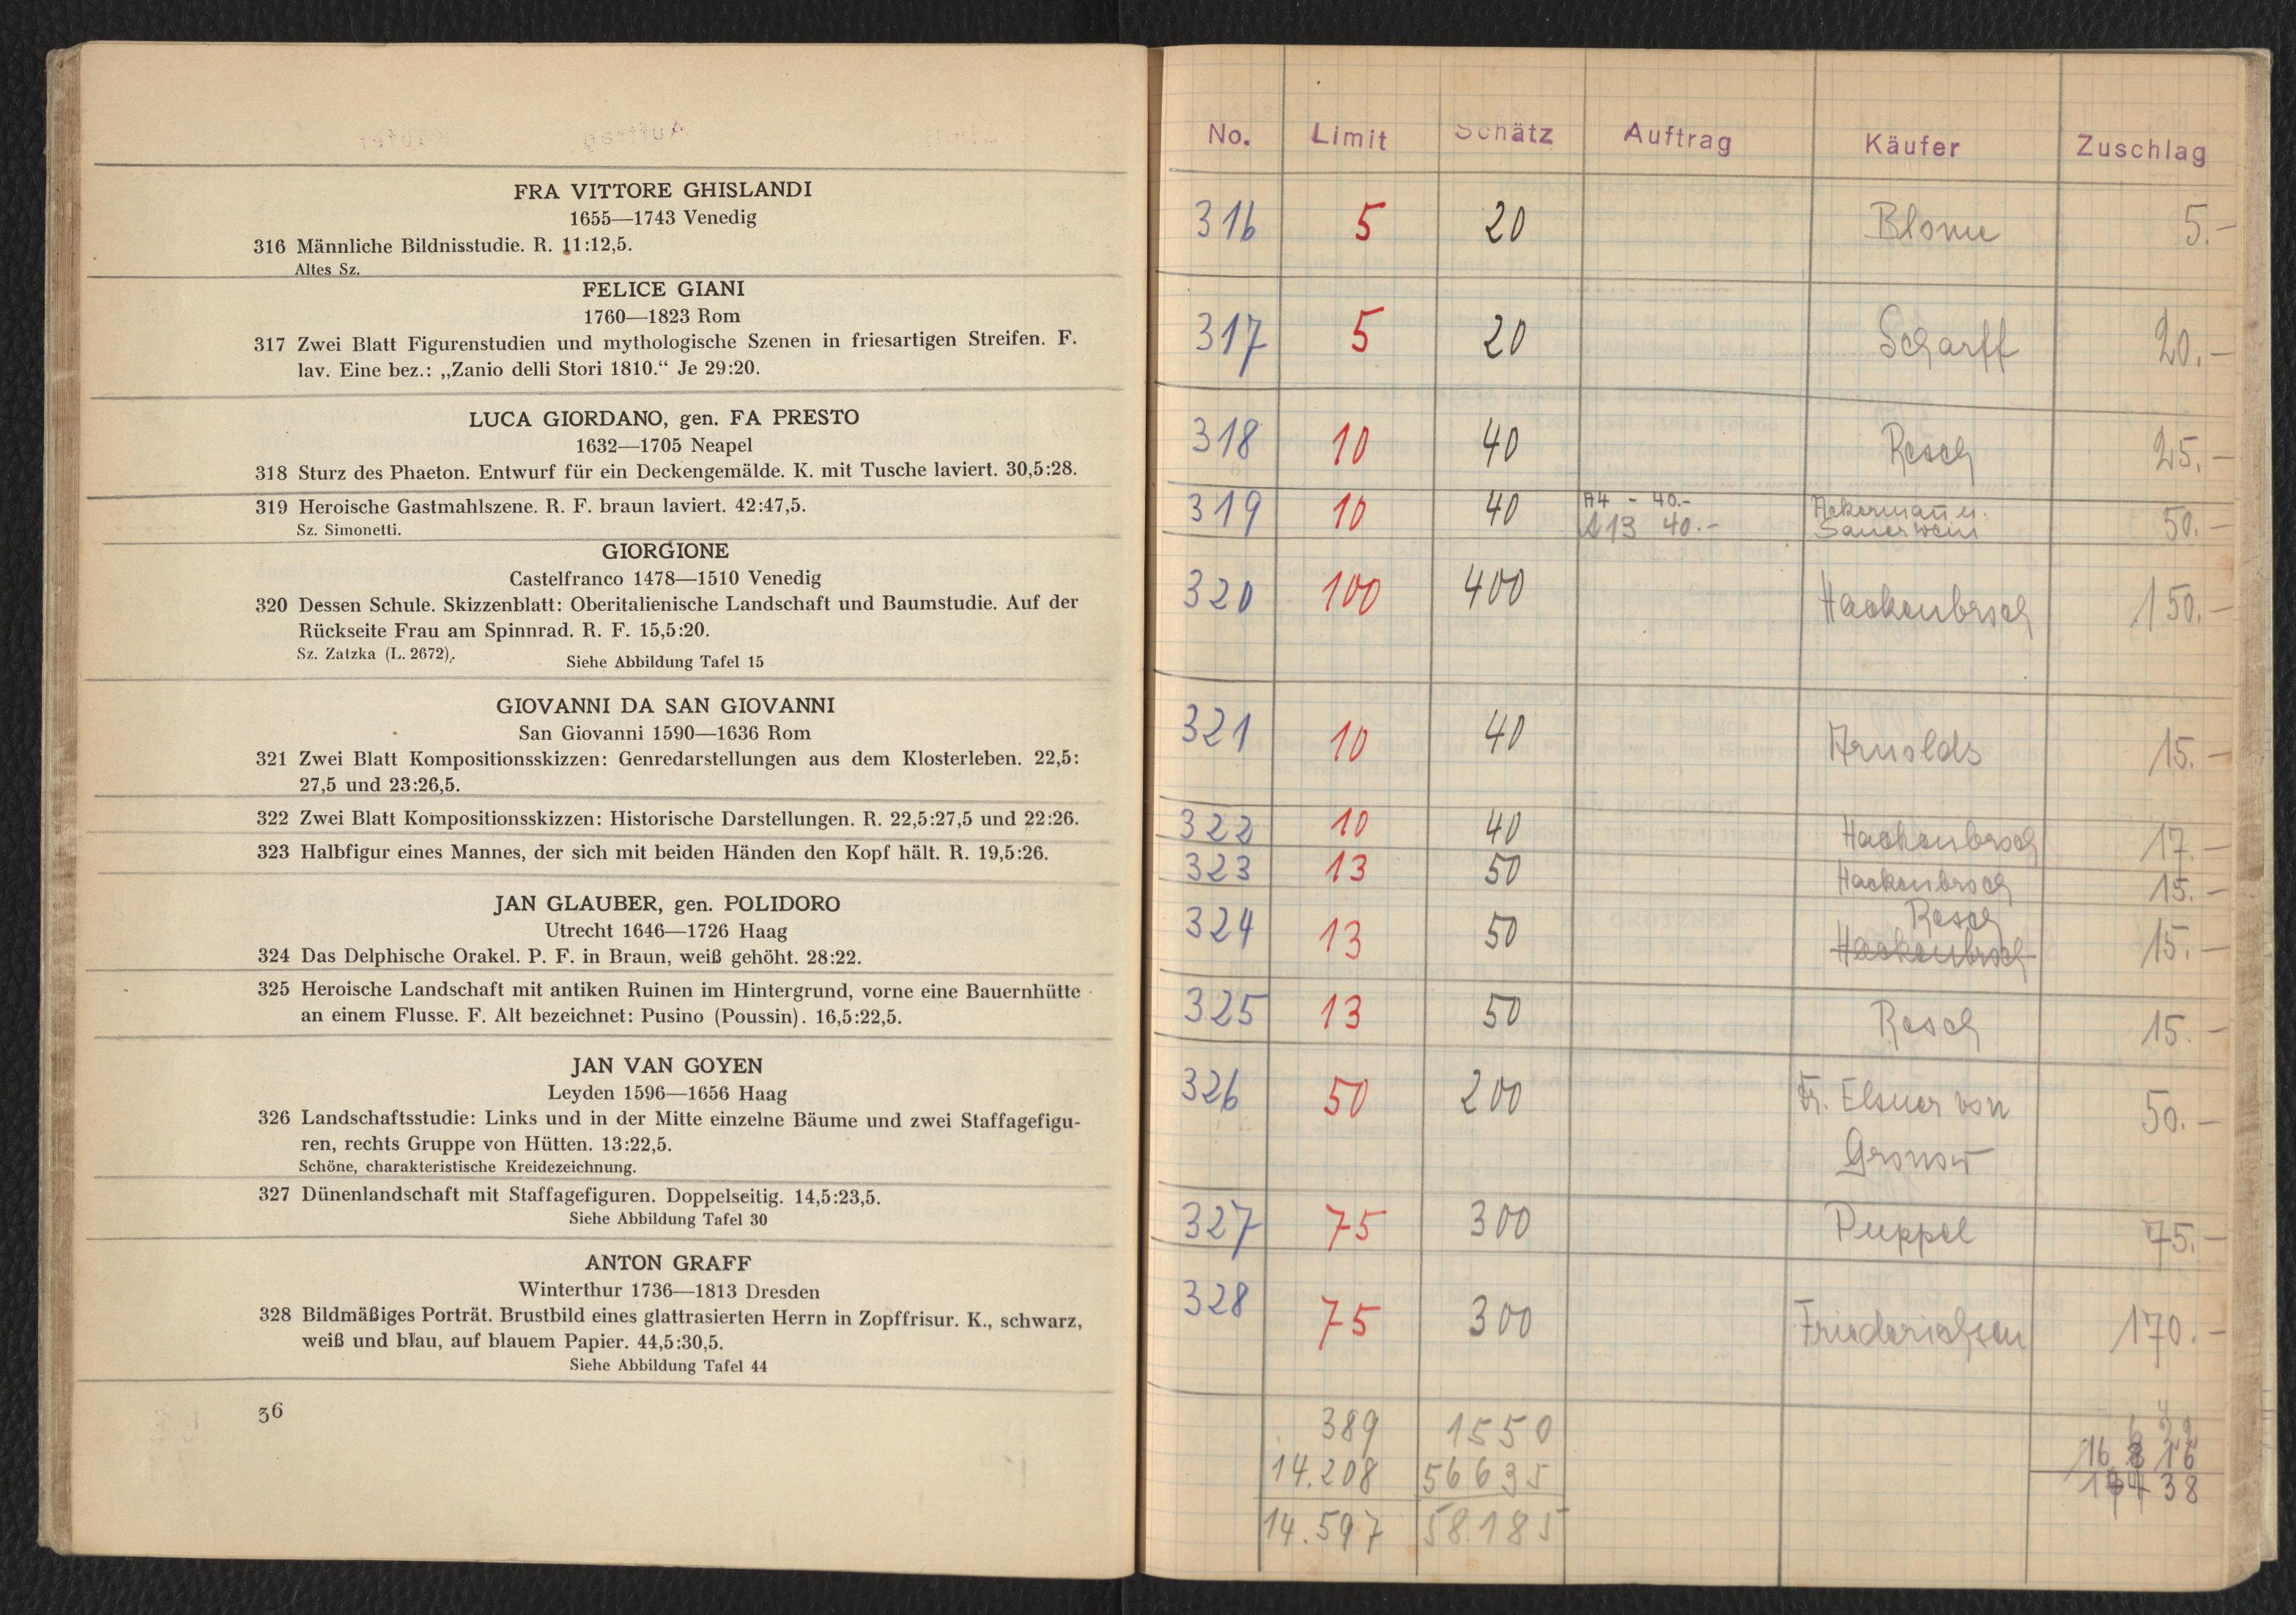 FRA VITTORE GHISLANDI
1655—1743 Venedig
316 Männliche Bildnisstudie. R. 11:12,5.
Altes Sz.
FELICE GIANI
1760—1823 Rom
317 Zwei Blatt Figurenstudien und mythologische Szenen in friesartigen Streifen. F.
lav. Eine bez.: „Zanio delli Stori 1810.“ Je 29:20.
LUCA GIORDANO, gen. FA PRESTO
1632—1705 Neapel
318 Sturz des Phaeton. Entwurf für ein Deckengemälde. K. mit Tusche laviert. 30,5:28.
319 Heroische Gastmahlszene. R. F. braun laviert. 42:47,5.
Sz. Simonetti.
GIORGIONE
Castelfranco 1478—1510 Venedig
320 Dessen Schule. Skizzenblatt: Oberitalienische Landschaft und Baumstudie. Auf der
Rückseite Frau am Spinnrad. R. F. 15,5:20.
Sz. Zatzka (L. 2672).
Siehe Abbildung Tafel 15
GIOVANNI DA SAN GIOVANNI
San Giovanni 1590—1636 Rom
321 Zwei Blatt Kompositionsskizzen: Genredarstellungen aus dem Klosterleben. 22,5:
27,5 und 23:26,5.
322 Zwei Blatt Kompositionsskizzen: Historische Darstellungen. R. 22,5:27,5 und 22:26.
323 Halbfigur eines Mannes, der sich mit beiden Händen den Kopf hält. R. 19,5:26.
JAN GLAUBER, gen. POLIDORO
Utrecht 1646—1726 Haag
324 Das Delphische Orakel. P. F. in Braun, weiß gehöht. 28:22.
325 Heroische Landschaft mit antiken Ruinen im Hintergrund, vorne eine Bauernhütte
an einem Flusse. F. Alt bezeichnet: Pusino (Poussin). 16,5:22,5.
JAN VAN GOYEN
Leyden 1596—1656 Haag
326 Landschaftsstudie: Links und in der Mitte einzelne Bäume und zwei Staffagefigu-
ren, rechts Gruppe von Hütten. 13:22,5.
Schöne, charakteristische Kreidezeichnung.
327 Dünenlandschaft mit Staffagefiguren. Doppelseitig. 14,5:23,5.
Siehe Abbildung Tafel 30
ANTON GRAFF
Winterthur 1736—1813 Dresden
328 Bildmäßiges Porträt. Brustbild eines glattrasierten Herrn in Zopffrisur. K., schwarz,
weiß und blau, auf blauem Papier. 44,5:30,5.
Siehe Abbildung Tafel 44
36
No. Limit Schätz Auftrag Käufer Zuschlag
316 5 20 Blome 5.-
317 5 20 Scharff 20.-
318 10 40 Resch 25.-
319 10 40 A4 - 40.- Ackermann u. 50.-
A13 40.- Sauerwein
320 100 400 Hackenbrsch 150.-
321 10 40 Arnolds 15.-
322 10 40 Hackenbroch 17.-
323 13 50 Hackenbroch 15.-
Resch
324 13 50 Hackenbroch 15.-
325 13 50 Resch 15.-
326 50 200 Fr. Elsner von 50.-
Gronow
327 75 300 Puppel 75.-
328 75 300 Friederichsen 170.-
389 1550
14.208 56635
14.597 58.185